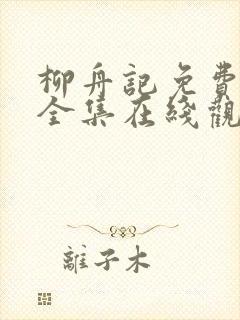 柳舟記免費
全集在綫觀
離子木